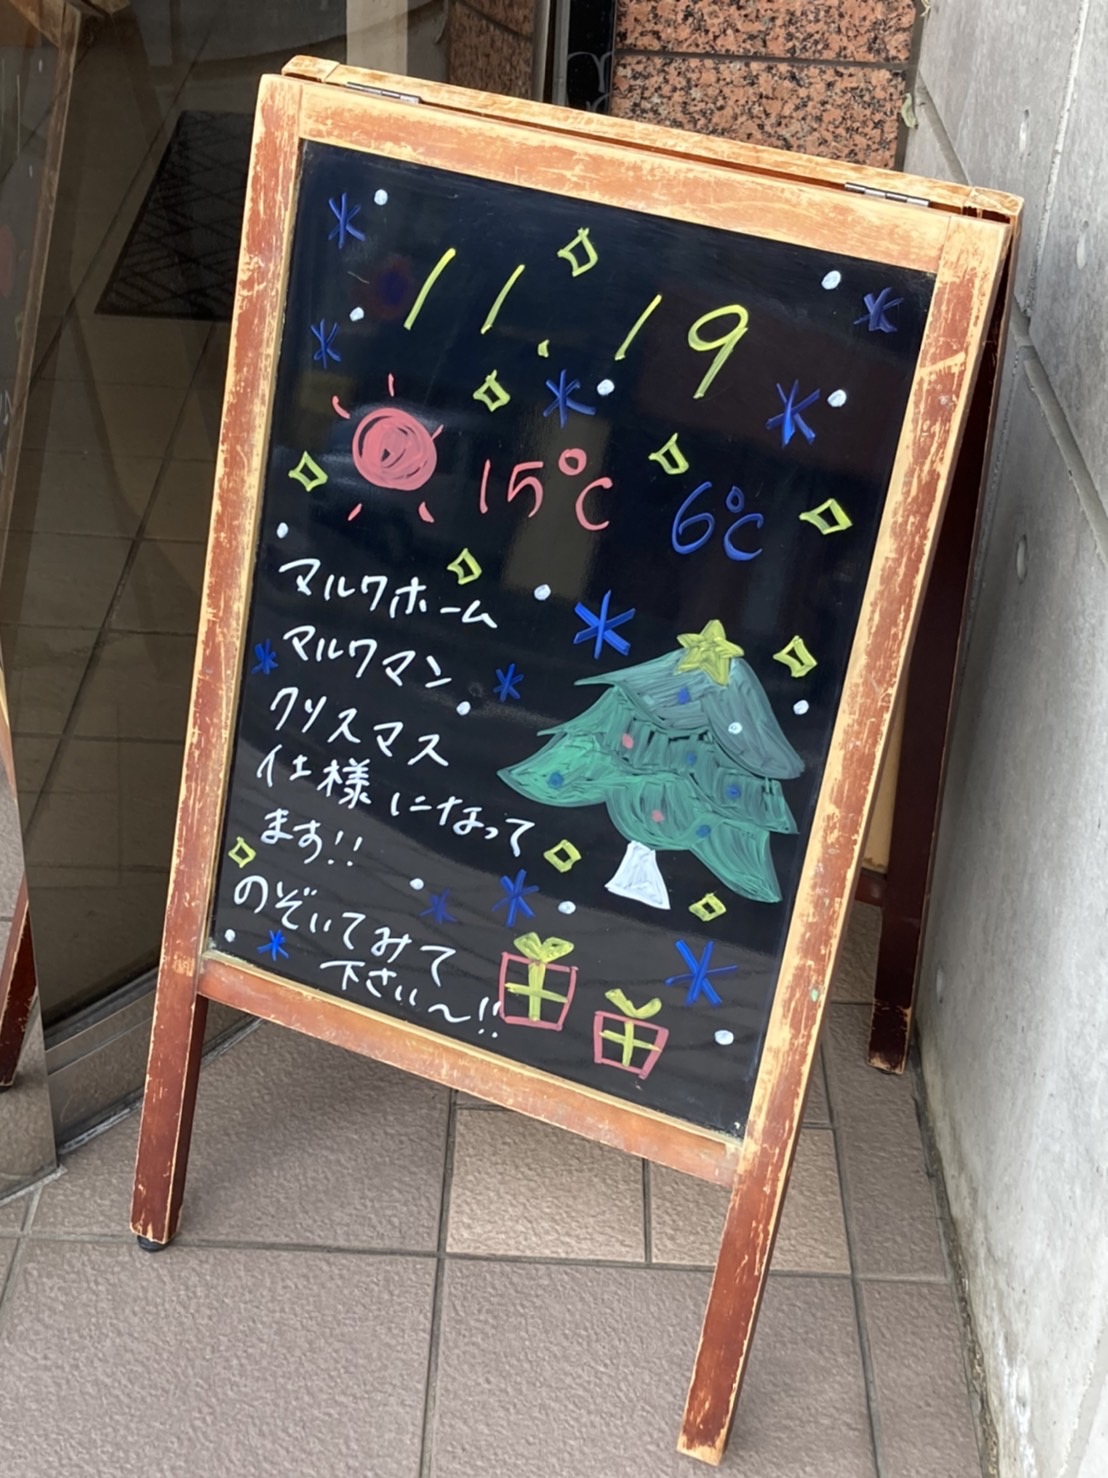 11.19
15℃ 6℃
マルワホーム
マルワマン
クリスマス
仕様になって
ます!!
のぞいてみて
下さい〜!!